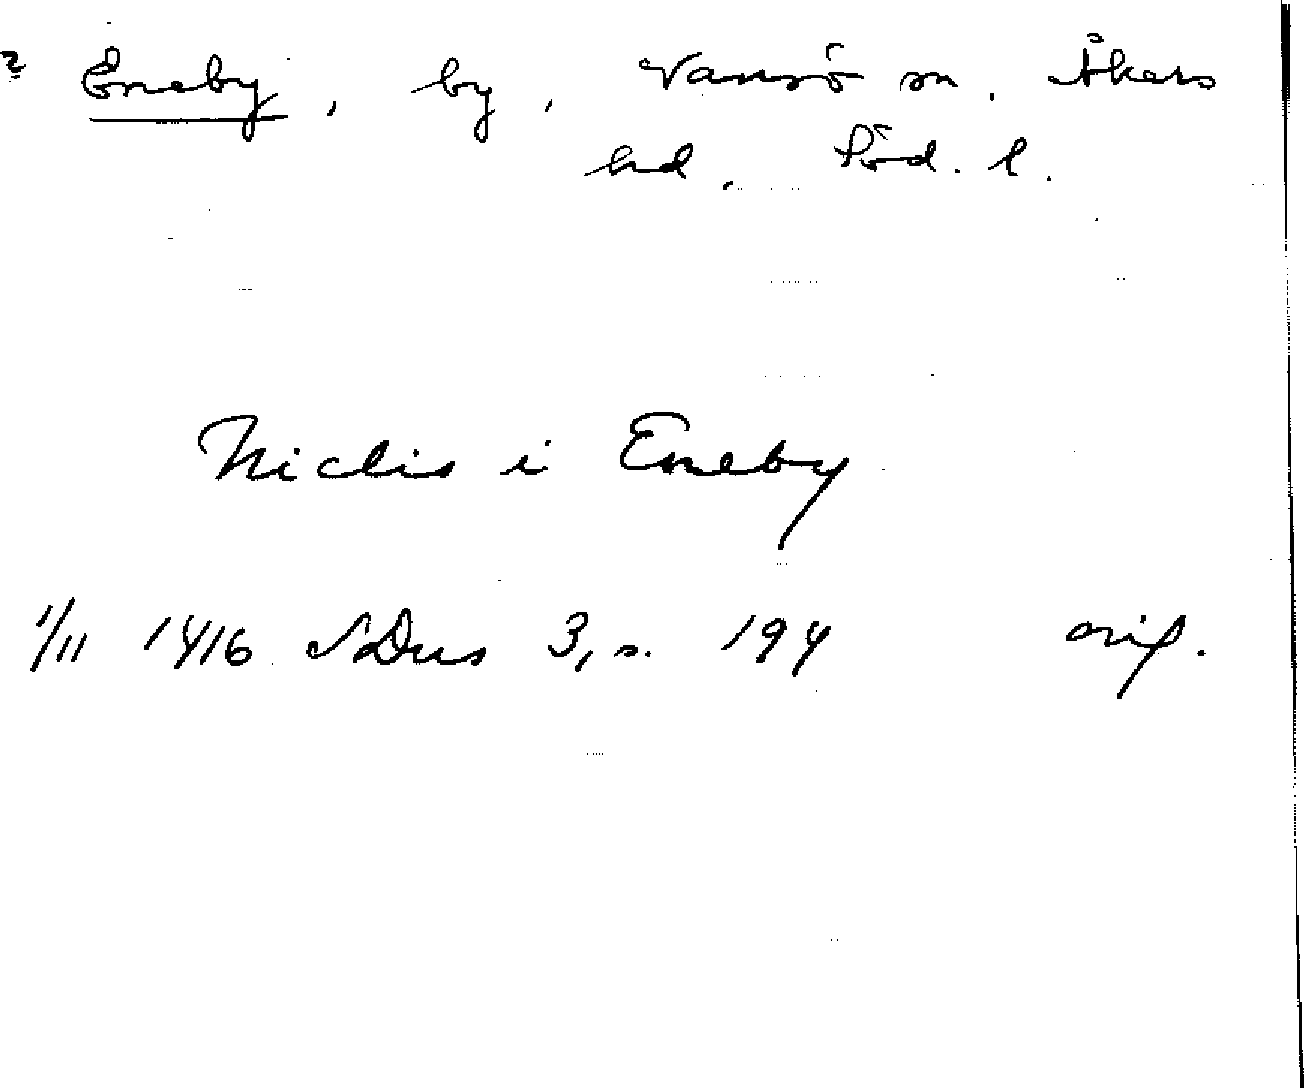 ? Eneby, by, Vansö sn. Åkers
hd, Söd. l.
Niclis i Eneby
1/11 1416 SvDns 3, s. 194 orig.